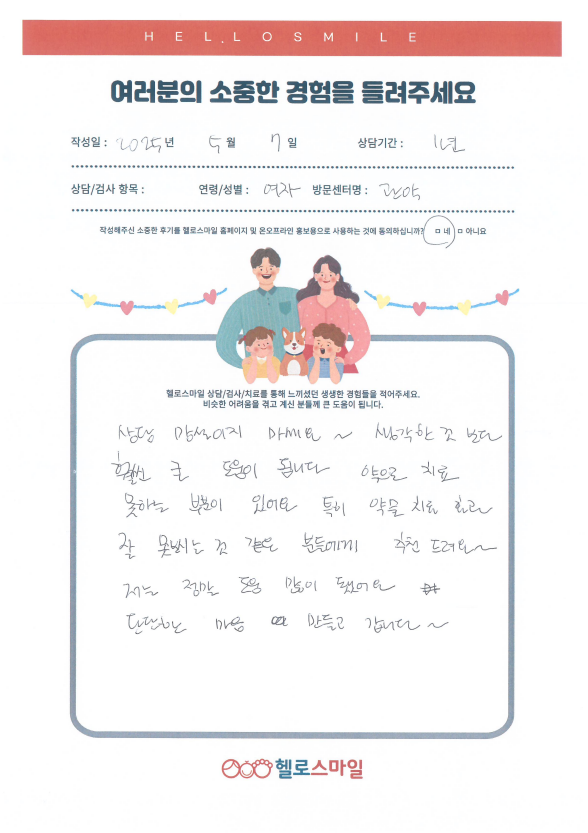 HELLOSMILE
여러분의 소중한 경험을 들려주세요
작성일 : 2025년 5월 7일 상담기간 : 1년
상담/검사 항목 : 연령/성별 : 여자 방문센터명 : 관악
작성해주신 소중한 후기를 헬로스마일 홈페이지 및 온오프라인 홍보용으로 사용하는 것에 동의하십니까? ㅁ 네 ㅁ 아니요
헬로스마일 상담/검사/치료를 통해 느끼셨던 생생한 경험들을 적어주세요.
비슷한 어려움을 겪고 계신 분들께 큰 도움이 됩니다.
상담 망설이지 마세요~ 생각한 것 보다
훨씬 큰 도움이 됩니다 약으로 치료
못하는 부분이 있어요 특히 약물 치료 효과
잘 못보시는 것 같은 분들에게 추천 드려요~
저는 정말 도움 많이 됐어요
단단한 마음 만들고 갑니다~
헬로스마일